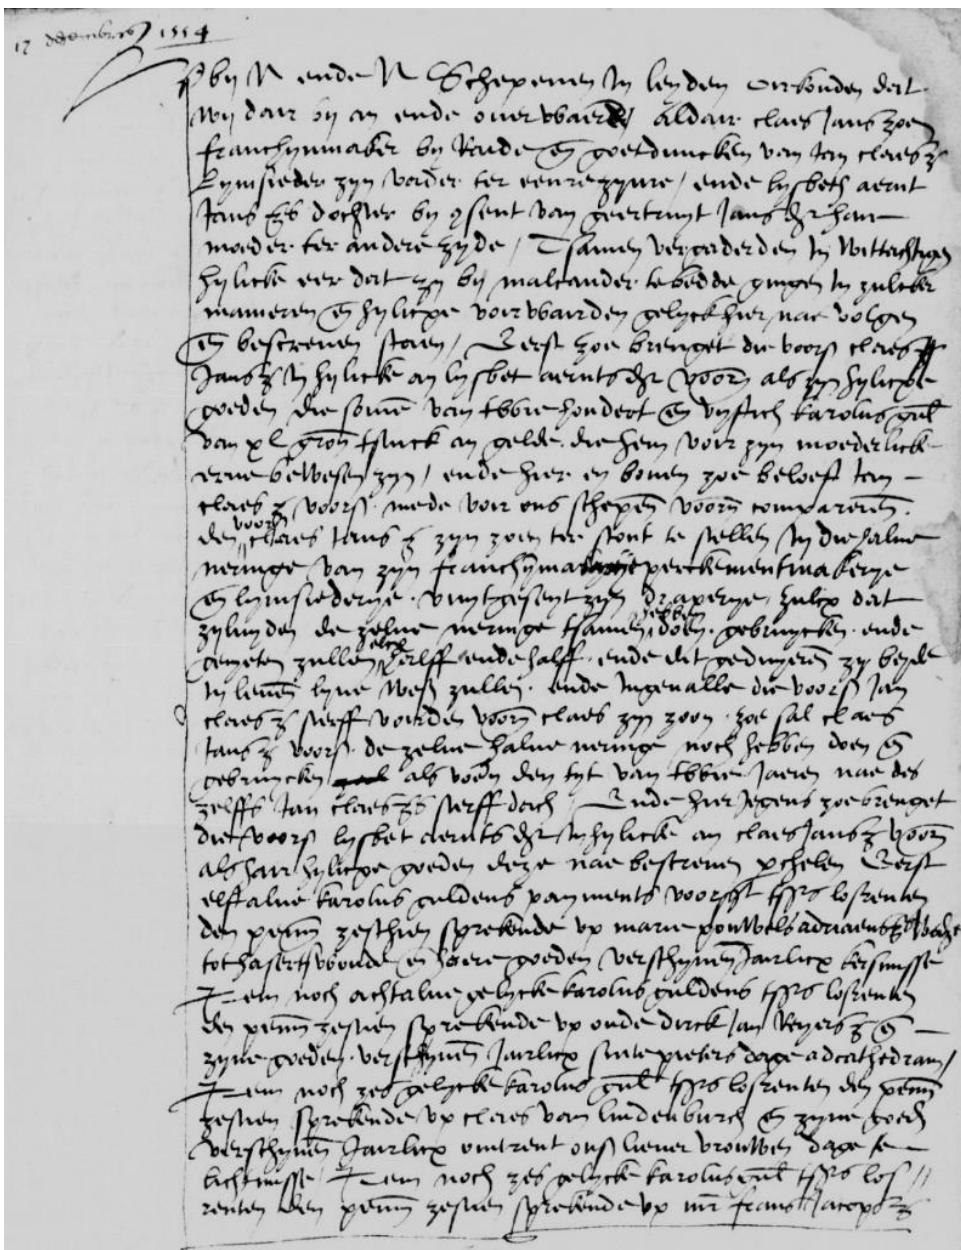 17 decembris 1554
Wij N ende N Schepenen In leyden oirkonden dat
wij dair bij an ende over waeren aldair claes Jans zoen
franchynmaker by Rade eñ goetduncken van Jan claes z
Lymsieder zyn vader ter eenre zyde / ende lysbeth aernt
Jans zs dochter by ɔsent van geertruyt Jans dr hair
moeder ter andere zyde / Tsamen vergaderden In wittachtigen
hylicke eer dat zy by malcander te bedde gingen In zulcker
manieren eñ hylicxe voirwairden gelyck hier nae volgen
eñ bescreven staen / Eerst zoe brenget die voors claes
Jans z In hylicke an lysbet aernts dr voorñ als zyn hylicxe
goeden die some van twie hondert eñ vyftich karolus gul
van xl groñ tstuck an gelde die hem voir zyn moederlicke
erve bewesen zyn / ende hier en boven zoe beloeft Jan
claes z voors mede voir ons schepeñ voorñ comparereñ
den voorñ claes Jans z zyn zoen ter stont te stellen In die halve
neringe van zyn franchynmakerye perckementmakerye
eñ lymsiederye vuytgeseyt zyn draperye zulcx dat
zyluyden de zelve neringe tsamen hebben doen gebruycken ende
genyeten zullen elcx half ende half ende dit gedueren zy beyde
In leven lyve weseñ zullen ende Ingevalle die voors Jan
claes z sterff voirden voorñ claes zyn zoon zoe sal claes
Jans z voors de zelve halve neringe noch hebben doen eñ
gebruycken als voorñ den tyt van twie Jaeren nae des
zelffs Jan claes zs sterff dach / Ende hier Jegens zoe brenget
die voors lysbet aernts dr In hylicke an claes Jans z voorñ
als hair hylicxe goeden deze nae bescreven pchelen Eerst
elftalve karolus guldens payments voorsst tsJrs losrenten
den penñ zesthien sprekende up marie pouwels adriaens zs weduwe
tot hasertswoude eñ haere goeden verschyneñ Jairlicx kersmisse
Item noch achtalve gelycke karolus guldens tsJrs losrenten
den penñ zestien sprekende up oude dirck Jan Reyers z eñ
zyne goeden verschyneñ Jairlicx sinte pieters dage ad cathedram /
Item noch zes gelycke karolus gul tsJrs losrenten den penñ
zestien sprekende up claes van lindenburch eñ zyne goedñ
verschyneñ Jairlicx omtrent ons liever vrouwen dage te
lichtmisse / Item noch zes gelycke karolus gul tsJrs los
renten den penñ zestien sprekende up mr frans Jacops z